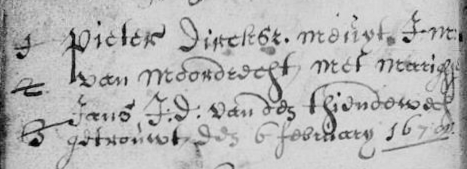 1 Pieter Dircksz. meüyt. J.m.
2 van Moordrecht, met Marigje
Jans J.d. van den thiendewech
3 getroüwt den 6 february